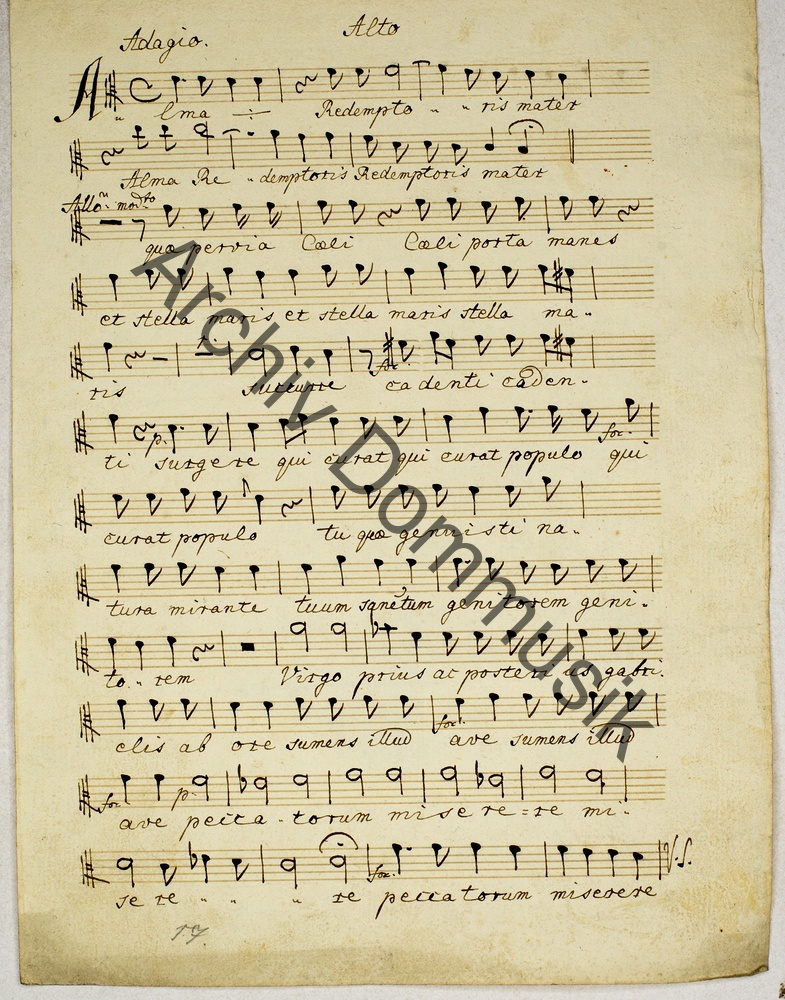 Alto
Adagio.
Alma Redempto " " ris mater
Alma Re " demptoris Redemptoris mater
Allo: modto
quæ pervia Cœli Cœli porta manes
et stella maris et stella maris stella ma"
ris succurre for: cadenti caden"
ti p: surgere qui curat qui curat populo for: qui
curat populo tu quæ genuisti na"
tura mirante tuum sanctum genitorem geni"
to " rem Virgo prius ac posterius gabri"
elis ab ore sumens illud for: ave sumens illud
for: ave p: pecca " torum mise re = re mi"
se re " " " re for: peccatorum miserere V.S.
17.
Archiv Dommusik